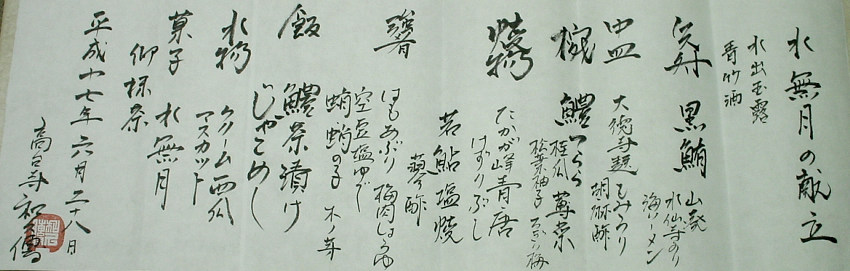 水無月の献立
水出玉露
青竹酒
先舟 黒鮪 山葵
水仙寺のり
海ソーメン
中皿 大徳寺麩 もみうり
胡麻酢
椀 鱧つらら 蓴菜
桂瓜
松葉柚子 みぞれ梅
焼物 たかが峰青唐
けずりぶし
若鮎塩焼
蓼酢
響 はもあぶり 梅肉しょうゆ
空豆塩ゆで
蛸 蛸の子 木ノ芽
飯 鱧茶漬け
じゃこめし
水物 クリーム西瓜
マスカット
菓子 水無月
御抹茶
平成十七年 六月二十八日
高台寺 和久傳